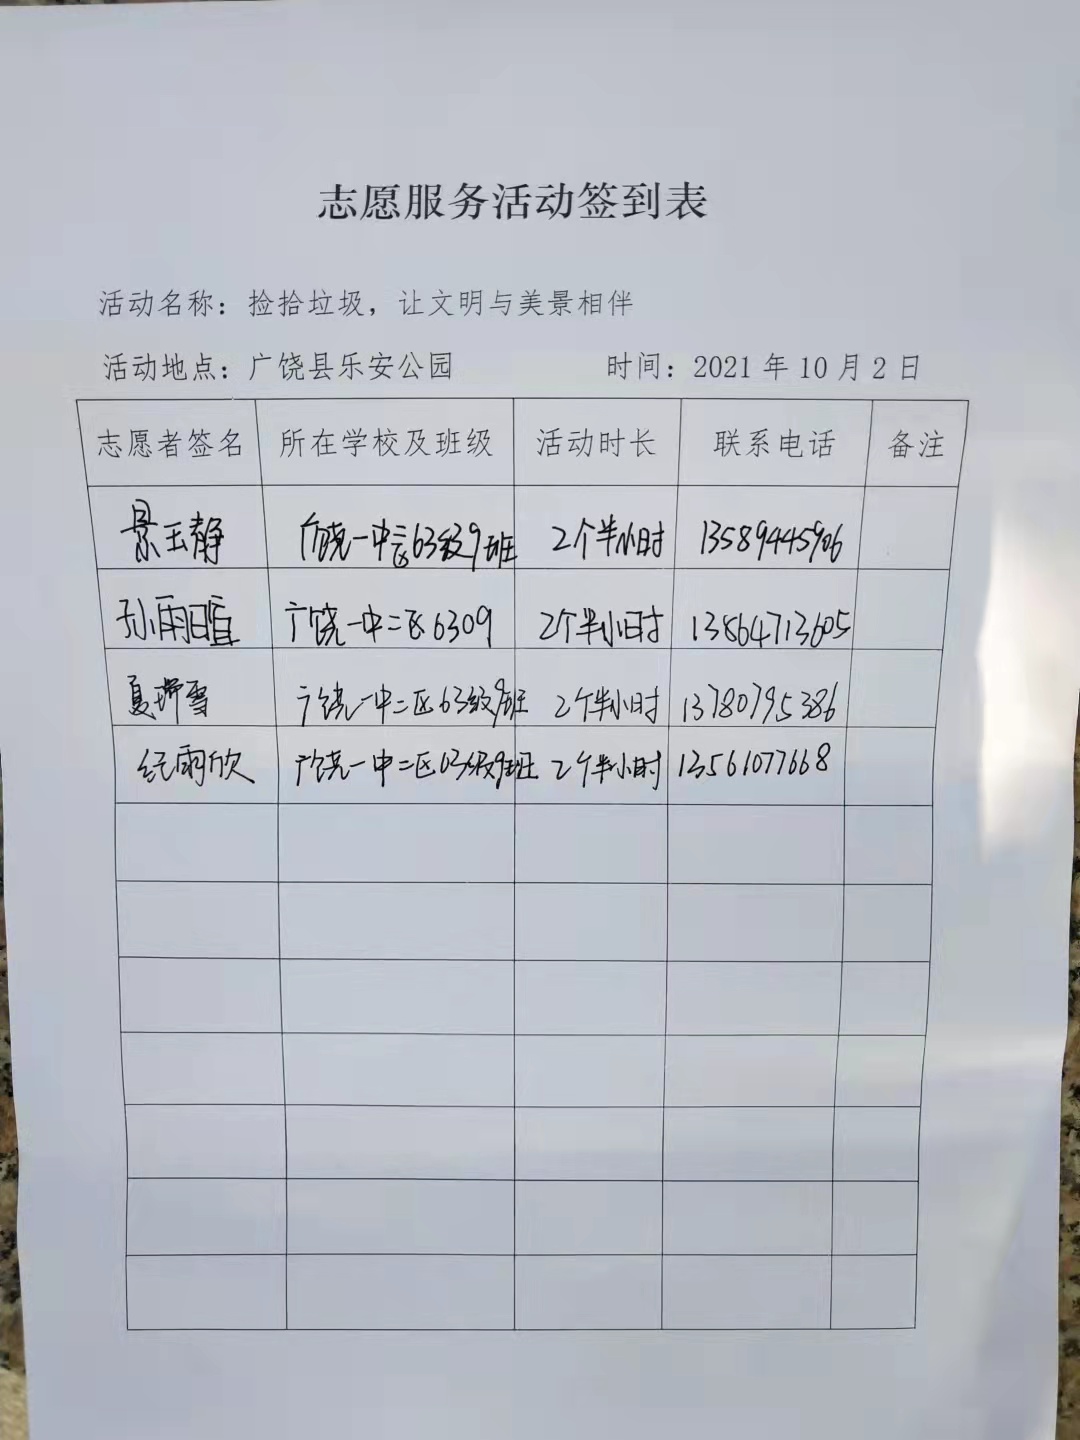 志愿服务活动签到表
活动名称：捡拾垃圾，让文明与美景相伴
活动地点：广饶县乐安公园 时间：2021年10月2日
志愿者签名 所在学校及班级 活动时长 联系电话 备注
景玉静 广饶一中二区63级9班 2个半小时 13589445906
孙雨暄 广饶一中二区6309 2个半小时 13864713605
夏瑞雪 广饶一中二区63级9班 2个半小时 13780795386
纪雨欣 广饶一中二区63级9班 2个半小时 13561077668